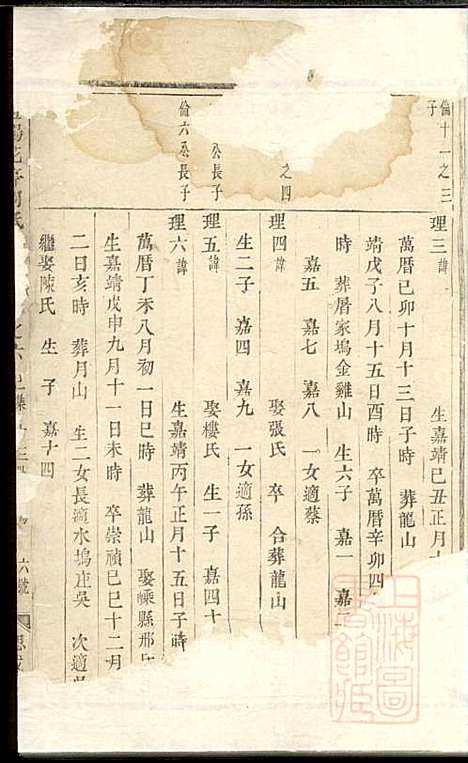 倫十一之三
子
理三 諱 生嘉靖己丑正月十
萬曆己卯十月十三日子時 葬龍山
靖戊子八月十五日酉時 卒萬曆辛卯四
時 葬厝家塢金雞山 生六子 嘉一 嘉二
嘉五 嘉七 嘉八 一女適蔡
之四
理四 諱 娶張氏 卒 合葬龍山
生二子 嘉四 嘉九 一女適孫
公長子
理五 諱 娶樓氏 生一子 嘉四十
倫六公長子
理六 諱 生嘉靖丙午正月十五日子時
萬曆丁未八月初一日巳時 葬龍山 娶嵊縣邢氏
生嘉靖戊申九月十一日未時 卒崇禎己巳十二月
二日亥時 葬月山 生二女長適水塢庄吳 次適
繼娶陳氏 生 子 嘉十四
六號
上海圖書館藏